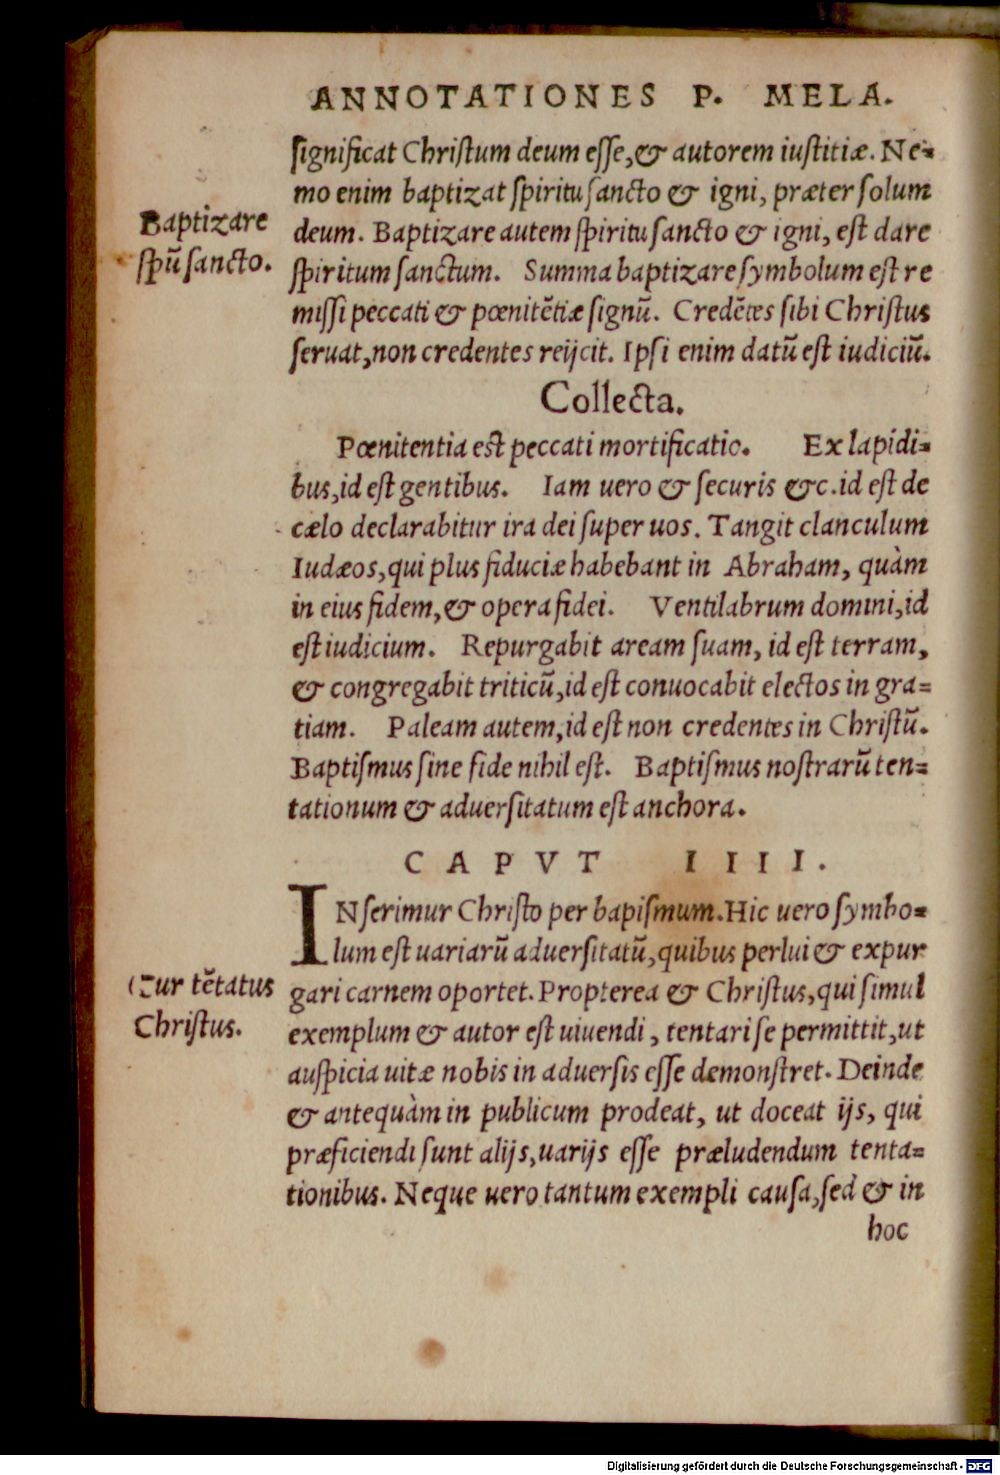 ANNOTATIONES P. MELA.
significat Christum deum esse,& autorem iustitiæ. Ne-
mo enim baptizat spiritu sancto & igni, præter solum
Baptizare
deum. Baptizare autem spiritu sancto & igni, est dare
spū sancto.
spiritum sanctum. Summa baptizare symbolum est re
missi peccati & pœnitētiæ signū. Credētes sibi Christus
seruat,non credentes reijcit. Ipsi enim datū est iudiciū.
Collecta.
Pœnitentia est peccati mortificatio. Ex lapidi-
bus,id est gentibus. Iam uero & securis &c.id est de
cælo declarabitur ira dei super uos. Tangit clanculum
Iudæos,qui plus fiduciæ habebant in Abraham, quàm
in eius fidem,& opera fidei. Ventilabrum domini,id
est iudicium. Repurgabit aream suam, id est terram,
& congregabit triticū,id est conuocabit electos in gra-
tiam. Paleam autem,id est non credentes in Christū.
Baptismus sine fide nihil est. Baptismus nostrarū ten-
tationum & aduersitatum est anchora.
CAPVT IIII.
INserimur Christo per bapismum.Hic uero symbo-
lum est uariarū aduersitatū,quibus perlui & expur
Cur tētatus
gari carnem oportet.Propterea & Christus,qui simul
Christus.
exemplum & autor est uiuendi, tentari se permittit,ut
auspicia uitæ nobis in aduersis esse demonstret. Deinde
& antequàm in publicum prodeat, ut doceat ijs, qui
præficiendi sunt alijs,uarijs esse præludendum tenta-
tionibus. Neque uero tantum exempli causa,sed & in
hoc
Digitalisierung gefördert durch die Deutsche Forschungsgemeinschaft - DFG